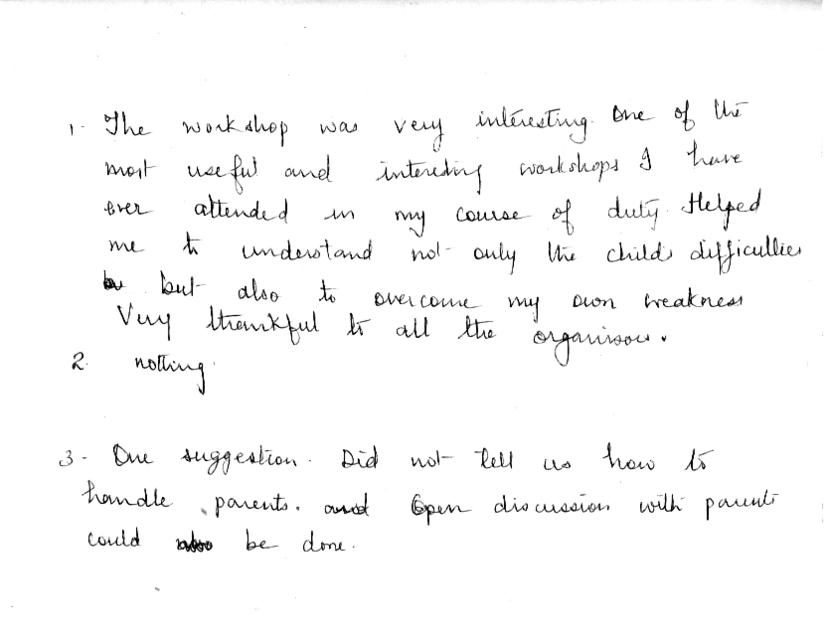 1. The workshop was very interesting. One of the
most useful and interesting workshops I have
ever attended in my course of duty. Helped
me to understand not only the child's difficulties
but also to overcome my own weakness
Very thankful to all the organisors.
2. nothing.
3 - One suggestion. Did not tell us how to
handle parents. and Open discussion with parents
could be done.